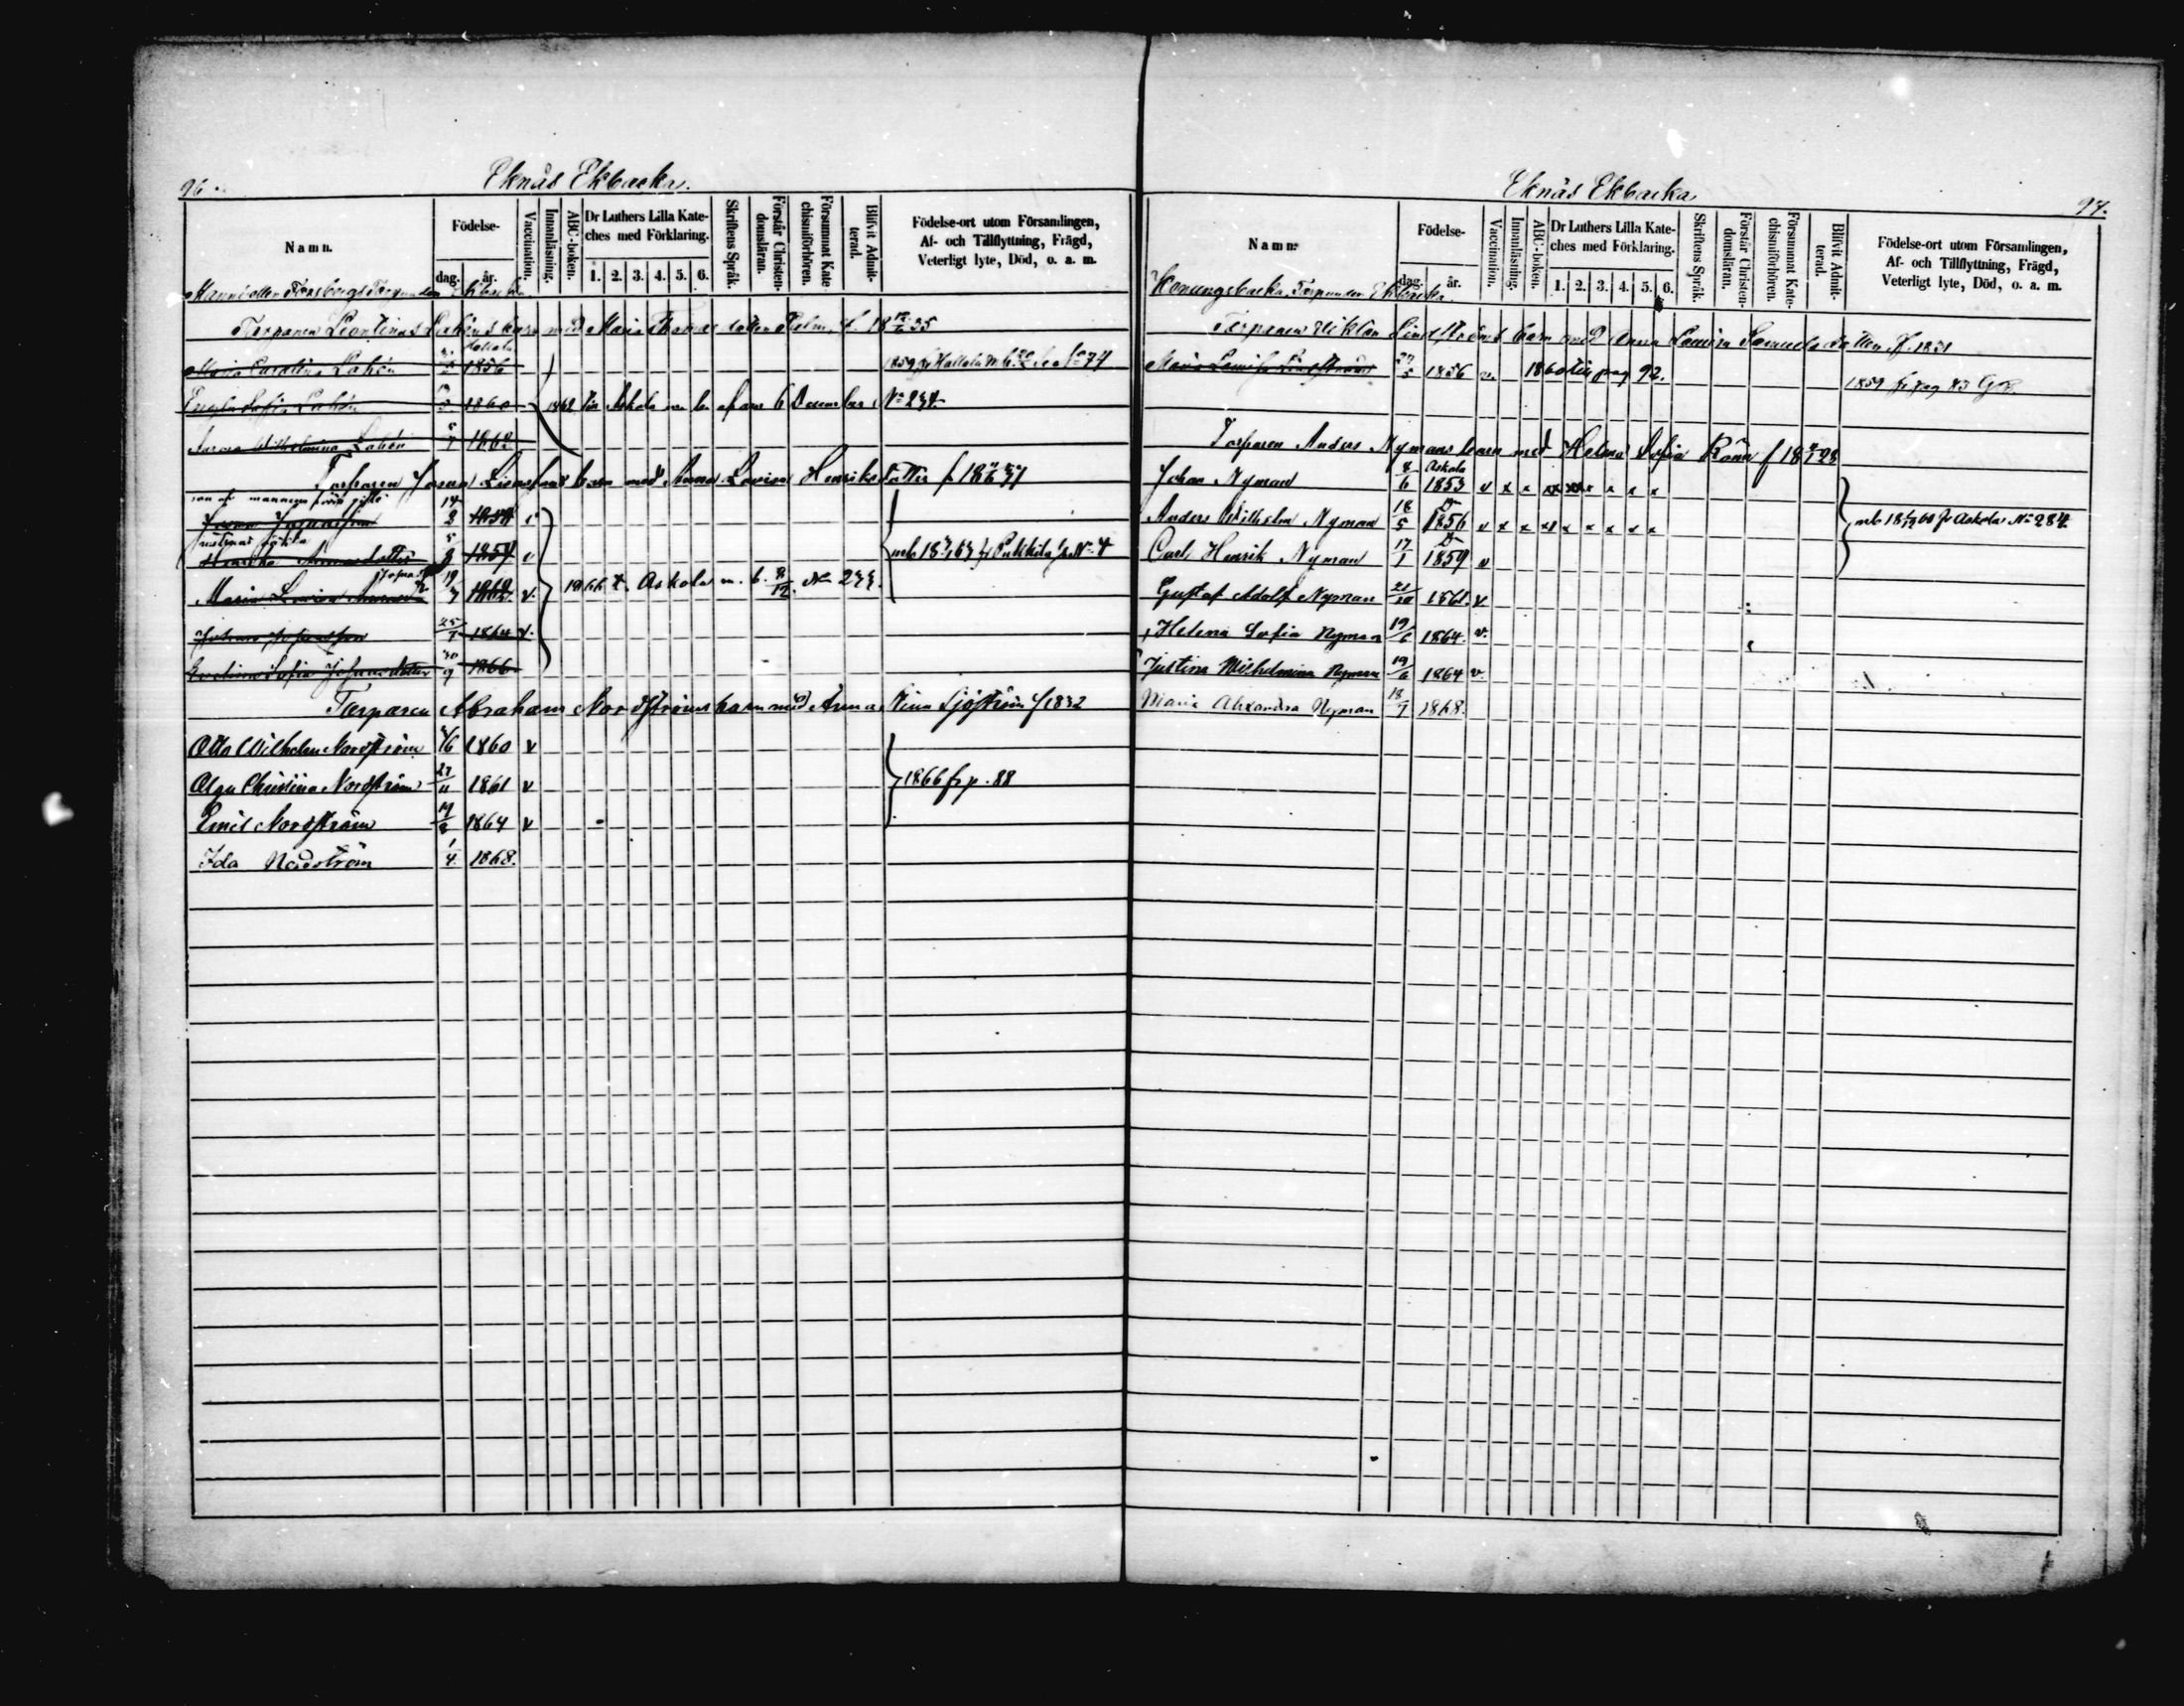 96.
Eknäs Ekbacka.
Namn.
Födelse-
dag. år.
Vaccination.
Innanläsning.
ABC-boken.
Dr Luthers Lilla Kate-
ches med Förklaring.
1. 2. 3. 4. 5. 6.
Skriftens Språk.
Förstår Christen-
domsläran.
Försummat Kate
chismiförhören.
Blifvit Admit-
terad.
Födelse-ort utom Församlingen,
Af- och Tillflyttning, Frägd,
Veterligt lyte, Död, o. a. m.
eller Forsbergs Torp under Ekbacka
Torparen Leontinus barn med Maria Thomasdotter f. 18 35
Maria Carolina Lahén 1856 1859 fr Hollola m. b. No 74
Sofia Lahén 1860 1862 till Askola m. b. af den 6 December No 234
Aurora Wilhelmina Lahén 5/7 1862
Torparen barn med Anna Lovisa Henriksdotter f 18 37
son af mannen från gifte
14/3
5/9 1857 v mb 18 63 fr Pukkila No 4
Maria Lovisa 19/7 1862. v. 1866 t. Askola m. b. 8/12 No 233.
25/1 1864 v.
Evelina Sofia 30/9 1866
Torparen Abraham Nordströms barn med Anna Stina Sjöström f 1832
Otto Wilhelm Nordström /6 1860 v
Olga Christina Nordström 27/11 1861 v 1866 fr p. 88
Emil Nordström 1864 v
Ida Nordström 1/4. 1868.
97.
Eknäs Ekbacka
Namn.
Födelse-
dag. år.
Vaccination.
Innanläsning.
ABC-boken.
Dr Luthers Lilla Kate-
ches med Förklaring.
1. 2. 3. 4. 5. 6.
Skriftens Språk.
Förstår Christen-
domsläran.
Försummat Kate-
chismiförhören.
Blifvit Admit-
terad.
Födelse-ort utom Församlingen,
Af- och Tillflyttning, Frägd,
Veterligt lyte, Död, o. a. m.
Konungsbacka, Torp under Ekbacka.
Torparen Niklas Lindströms barn med Anna Lovisa Samuelsdotter f. 1831
Maria Lovisa Lindström 1856 v. 1860 till pag 92. 1859 fr. pag 83
Torparen Anders Nymans barn med Helena Sofia Rönn f 18 28
Johan Nyman 8/6 Askola 1853 v x x x x x x x
Anders Wilhelm Nyman 18/5 D 1856 v x x x x x x x x mb 18 60 fr Askola No 284
Carl Henrik Nyman 17/1 D 1859 v
Gustaf Adolf Nyman 21/10 1861. v
Helena Sofia Nyman 19/6 1864. v.
Justina Wilhelmina Nyman 19/6 1864 v.
Maria Alexandra Nyman 18/1 1868.